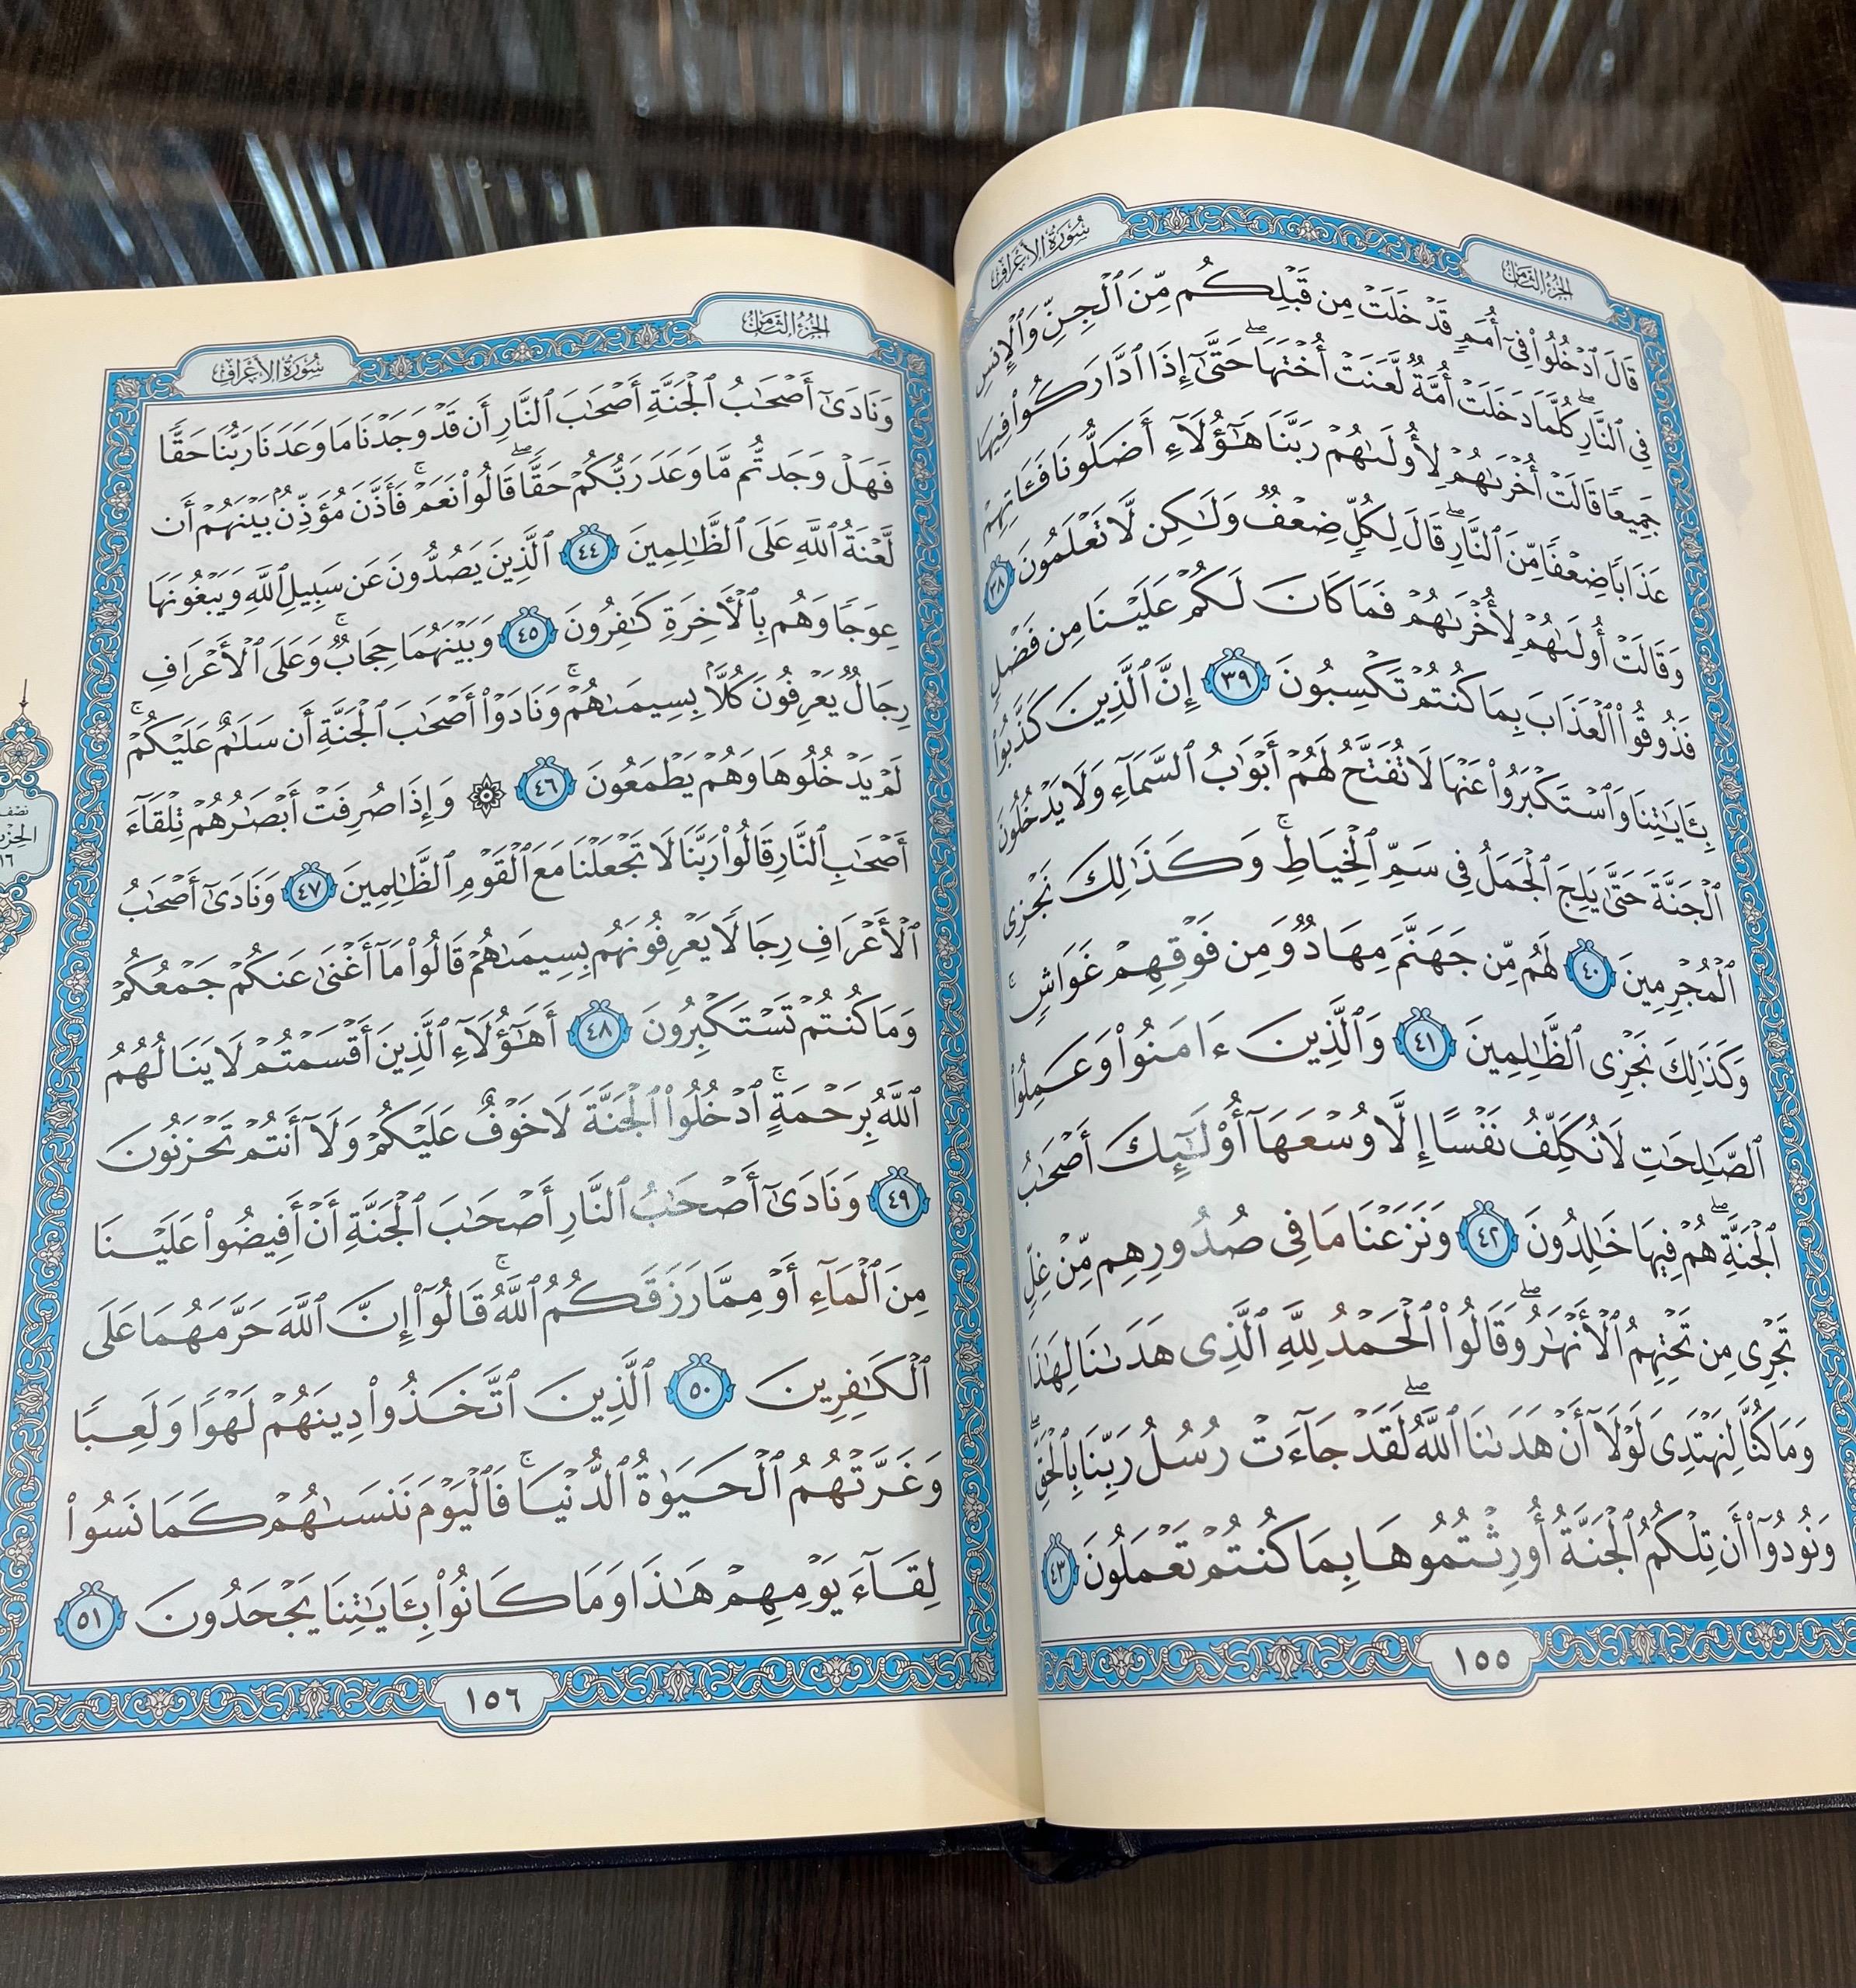 الجُزْءُ الثَّامِنُ
سُورَةُ الأَعْرَافِ
قَالَ ٱدْخُلُوا۟ فِىٓ أُمَمٍ قَدْ خَلَتْ مِن قَبْلِكُم مِّنَ ٱلْجِنِّ وَٱلْإِنسِ
فِى ٱلنَّارِ ۖ كُلَّمَا دَخَلَتْ أُمَّةٌ لَّعَنَتْ أُخْتَهَا ۖ حَتَّىٰٓ إِذَا ٱدَّارَكُوا۟ فِيهَا
جَمِيعًا قَالَتْ أُخْرَىٰهُمْ لِأُولَىٰهُمْ رَبَّنَا هَـٰٓؤُلَآءِ أَضَلُّونَا فَـَٔاتِهِمْ
عَذَابًا ضِعْفًا مِّنَ ٱلنَّارِ ۖ قَالَ لِكُلٍّ ضِعْفٌ وَلَـٰكِن لَّا تَعْلَمُونَ ٣٨
وَقَالَتْ أُولَىٰهُمْ لِأُخْرَىٰهُمْ فَمَا كَانَ لَكُمْ عَلَيْنَا مِن فَضْلٍ
فَذُوقُوا۟ ٱلْعَذَابَ بِمَا كُنتُمْ تَكْسِبُونَ ٣٩ إِنَّ ٱلَّذِينَ كَذَّبُوا۟
بِـَٔايَـٰتِنَا وَٱسْتَكْبَرُوا۟ عَنْهَا لَا تُفَتَّحُ لَهُمْ أَبْوَٰبُ ٱلسَّمَآءِ وَلَا يَدْخُلُونَ
ٱلْجَنَّةَ حَتَّىٰ يَلِجَ ٱلْجَمَلُ فِى سَمِّ ٱلْخِيَاطِ ۚ وَكَذَٰلِكَ نَجْزِى
ٱلْمُجْرِمِينَ ٤٠ لَهُم مِّن جَهَنَّمَ مِهَادٌ وَمِن فَوْقِهِمْ غَوَاشٍ ۚ
وَكَذَٰلِكَ نَجْزِى ٱلظَّـٰلِمِينَ ٤١ وَٱلَّذِينَ ءَامَنُوا۟ وَعَمِلُوا۟
ٱلصَّـٰلِحَـٰتِ لَا نُكَلِّفُ نَفْسًا إِلَّا وُسْعَهَآ أُو۟لَـٰٓئِكَ أَصْحَـٰبُ
ٱلْجَنَّةِ ۖ هُمْ فِيهَا خَـٰلِدُونَ ٤٢ وَنَزَعْنَا مَا فِى صُدُورِهِم مِّنْ غِلٍّ
تَجْرِى مِن تَحْتِهِمُ ٱلْأَنْهَـٰرُ ۖ وَقَالُوا۟ ٱلْحَمْدُ لِلَّهِ ٱلَّذِى هَدَىٰنَا لِهَـٰذَا
وَمَا كُنَّا لِنَهْتَدِىَ لَوْلَآ أَنْ هَدَىٰنَا ٱللَّهُ ۖ لَقَدْ جَآءَتْ رُسُلُ رَبِّنَا بِٱلْحَقِّ ۖ
وَنُودُوٓا۟ أَن تِلْكُمُ ٱلْجَنَّةُ أُورِثْتُمُوهَا بِمَا كُنتُمْ تَعْمَلُونَ ٤٣
١٥٥
الجُزْءُ الثَّامِنُ
سُورَةُ الأَعْرَافِ
وَنَادَىٰٓ أَصْحَـٰبُ ٱلْجَنَّةِ أَصْحَـٰبَ ٱلنَّارِ أَن قَدْ وَجَدْنَا مَا وَعَدَنَا رَبُّنَا حَقًّا
فَهَلْ وَجَدتُّم مَّا وَعَدَ رَبُّكُمْ حَقًّا ۖ قَالُوا۟ نَعَمْ ۚ فَأَذَّنَ مُؤَذِّنٌۢ بَيْنَهُمْ أَن
لَّعْنَةُ ٱللَّهِ عَلَى ٱلظَّـٰلِمِينَ ٤٤ ٱلَّذِينَ يَصُدُّونَ عَن سَبِيلِ ٱللَّهِ وَيَبْغُونَهَا
عِوَجًا وَهُم بِٱلْـَٔاخِرَةِ كَـٰفِرُونَ ٤٥ وَبَيْنَهُمَا حِجَابٌ ۚ وَعَلَى ٱلْأَعْرَافِ
رِجَالٌ يَعْرِفُونَ كُلًّۢا بِسِيمَىٰهُمْ ۚ وَنَادَوْا۟ أَصْحَـٰبَ ٱلْجَنَّةِ أَن سَلَـٰمٌ عَلَيْكُمْ ۚ
لَمْ يَدْخُلُوهَا وَهُمْ يَطْمَعُونَ ٤٦ ۞ وَإِذَا صُرِفَتْ أَبْصَـٰرُهُمْ تِلْقَآءَ
أَصْحَـٰبِ ٱلنَّارِ قَالُوا۟ رَبَّنَا لَا تَجْعَلْنَا مَعَ ٱلْقَوْمِ ٱلظَّـٰلِمِينَ ٤٧ وَنَادَىٰٓ أَصْحَـٰبُ
ٱلْأَعْرَافِ رِجَالًا يَعْرِفُونَهُم بِسِيمَىٰهُمْ قَالُوا۟ مَآ أَغْنَىٰ عَنكُمْ جَمْعُكُمْ
وَمَا كُنتُمْ تَسْتَكْبِرُونَ ٤٨ أَهَـٰٓؤُلَآءِ ٱلَّذِينَ أَقْسَمْتُمْ لَا يَنَالُهُمُ
ٱللَّهُ بِرَحْمَةٍ ۚ ٱدْخُلُوا۟ ٱلْجَنَّةَ لَا خَوْفٌ عَلَيْكُمْ وَلَآ أَنتُمْ تَحْزَنُونَ
٤٩ وَنَادَىٰٓ أَصْحَـٰبُ ٱلنَّارِ أَصْحَـٰبَ ٱلْجَنَّةِ أَنْ أَفِيضُوا۟ عَلَيْنَا
مِنَ ٱلْمَآءِ أَوْ مِمَّا رَزَقَكُمُ ٱللَّهُ ۚ قَالُوٓا۟ إِنَّ ٱللَّهَ حَرَّمَهُمَا عَلَى
ٱلْكَـٰفِرِينَ ٥٠ ٱلَّذِينَ ٱتَّخَذُوا۟ دِينَهُمْ لَهْوًا وَلَعِبًا
وَغَرَّتْهُمُ ٱلْحَيَوٰةُ ٱلدُّنْيَا ۚ فَٱلْيَوْمَ نَنسَىٰهُمْ كَمَا نَسُوا۟
لِقَآءَ يَوْمِهِمْ هَـٰذَا وَمَا كَانُوا۟ بِـَٔايَـٰتِنَا يَجْحَدُونَ ٥١
نصف
الحزب
١٦
١٥٦